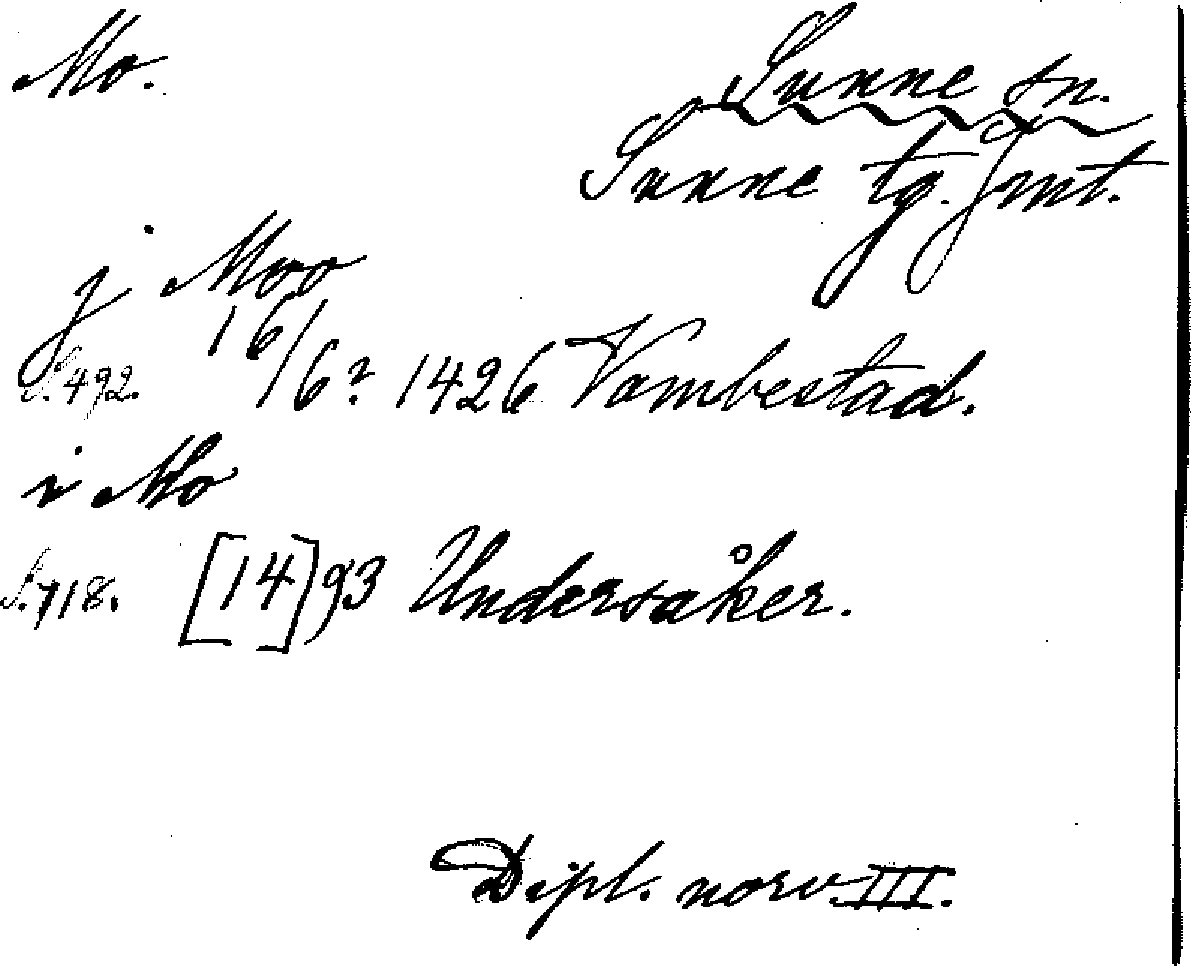 Mo.
Sunne sn.
Sunne tg. Jmt.
j Moo
S. 492. 16/6? 1426 Vambestad.
i Mo
S. 718. [14]93 Undersåker.
Dipl. norv. III.